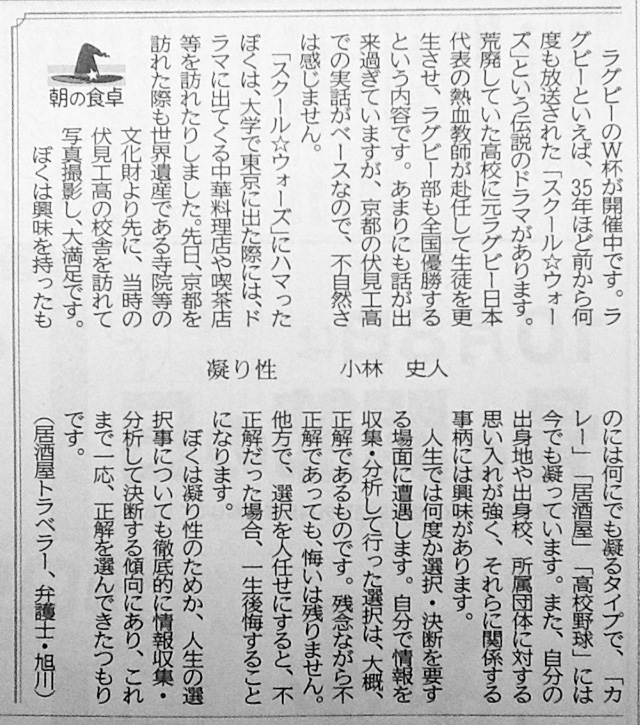 朝の食卓
凝り性
小林　史人
　ラグビーのW杯が開催中です。ラ
グビーといえば、35年ほど前から何
度も放送された「スクール☆ウォー
ズ」という伝説のドラマがあります。
荒廃していた高校に元ラグビー日本
代表の熱血教師が赴任して生徒を更
生させ、ラグビー部も全国優勝する
という内容です。あまりにも話が出
来過ぎていますが、京都の伏見工高
での実話がベースなので、不自然さ
は感じません。
　「スクール☆ウォーズ」にハマった
ぼくは、大学で東京に出た際には、ド
ラマに出てくる中華料理店や喫茶店
等を訪れたりしました。先日、京都を
訪れた際も世界遺産である寺院等の
文化財より先に、当時の
伏見工高の校舎を訪れて
写真撮影し、大満足です。
　ぼくは興味を持ったも
のには何にでも凝るタイプで、「カ
レー」「居酒屋」「高校野球」には
今でも凝っています。また、自分の
出身地や出身校、所属団体に対する
思い入れが強く、それらに関係する
事柄には興味があります。
　人生では何度か選択・決断を要す
る場面に遭遇します。自分で情報を
収集・分析して行った選択は、大概、
正解であるものです。残念ながら不
正解であっても、悔いは残りません。
他方で、選択を人任せにすると、不
正解だった場合、一生後悔すること
になります。
　ぼくは凝り性のためか、人生の選
択事についても徹底的に情報収集・
分析して決断する傾向にあり、これ
まで一応、正解を選んできたつもり
です。
（居酒屋トラベラー、弁護士・旭川）